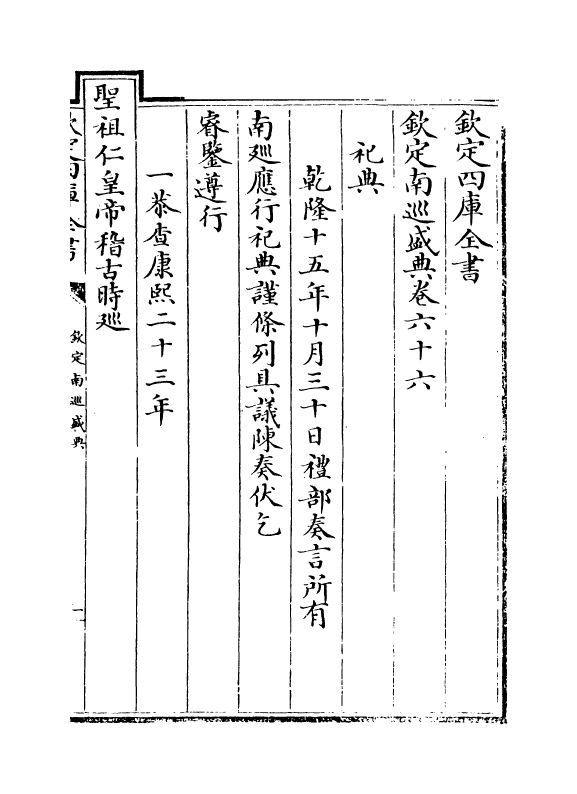 欽定四庫全書
欽定南巡盛典卷六十六
祀典
乾隆十五年十月三十日禮部奏言所有
南廵應行祀典謹條列具議陳奏伏乞
睿鑒遵行
一恭查康熙二十三年
聖祖仁皇帝稽古時廵
欽定四庫全書
欽定南巡盛典
一